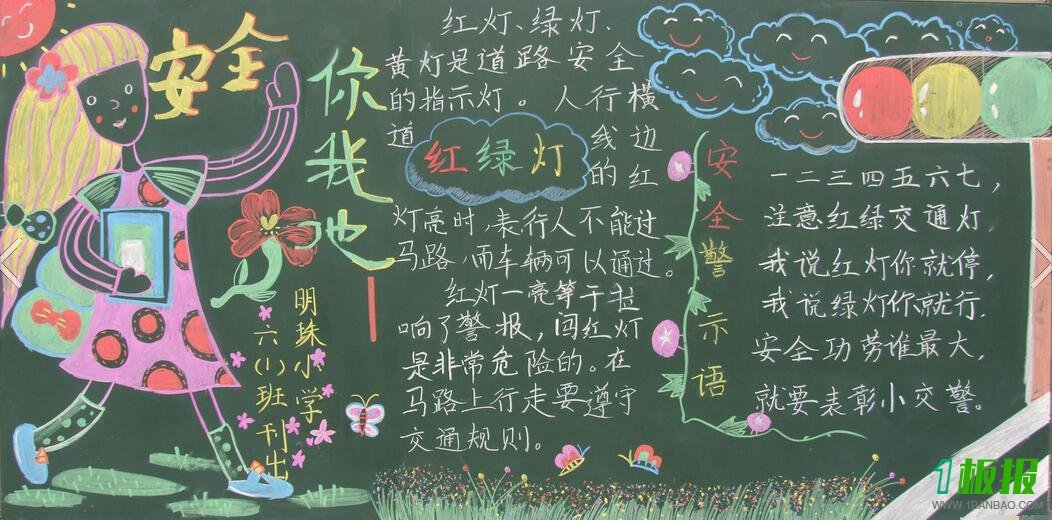 安全
你我他
红灯、绿灯、
黄灯是道路安全
的指示灯。人行横
道
线边
的红
红绿灯
灯亮时,表行人不能过
马路,而车辆可以通过。
红灯一亮等于拉
响了警报,闯红灯
是非常危险的。在
马路上行走要遵守
交通规则。
安全警示语
一二三四五六七,
注意红绿交通灯,
我说红灯你就停,
我说绿灯你就行.
安全功劳谁最大,
就要表彰小交警。
明珠小学
六(1)班刊出
1板报
WWW.1BANBAO.COM